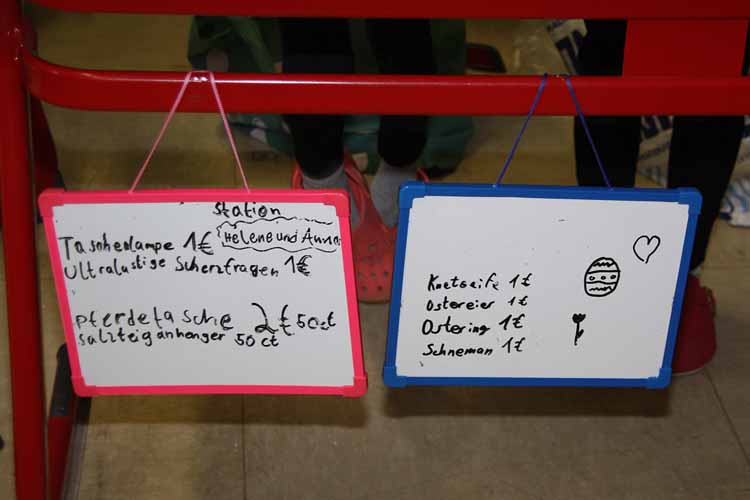 Station
Helene und Anna
Taschenlampe 1€
Ultralustige Scherzfragen 1€
Pferdetasche 2€50ct
Salzteiganhänger 50ct
Knetseife 1€
Ostereier 1€
Ostering 1€
Schneman 1€